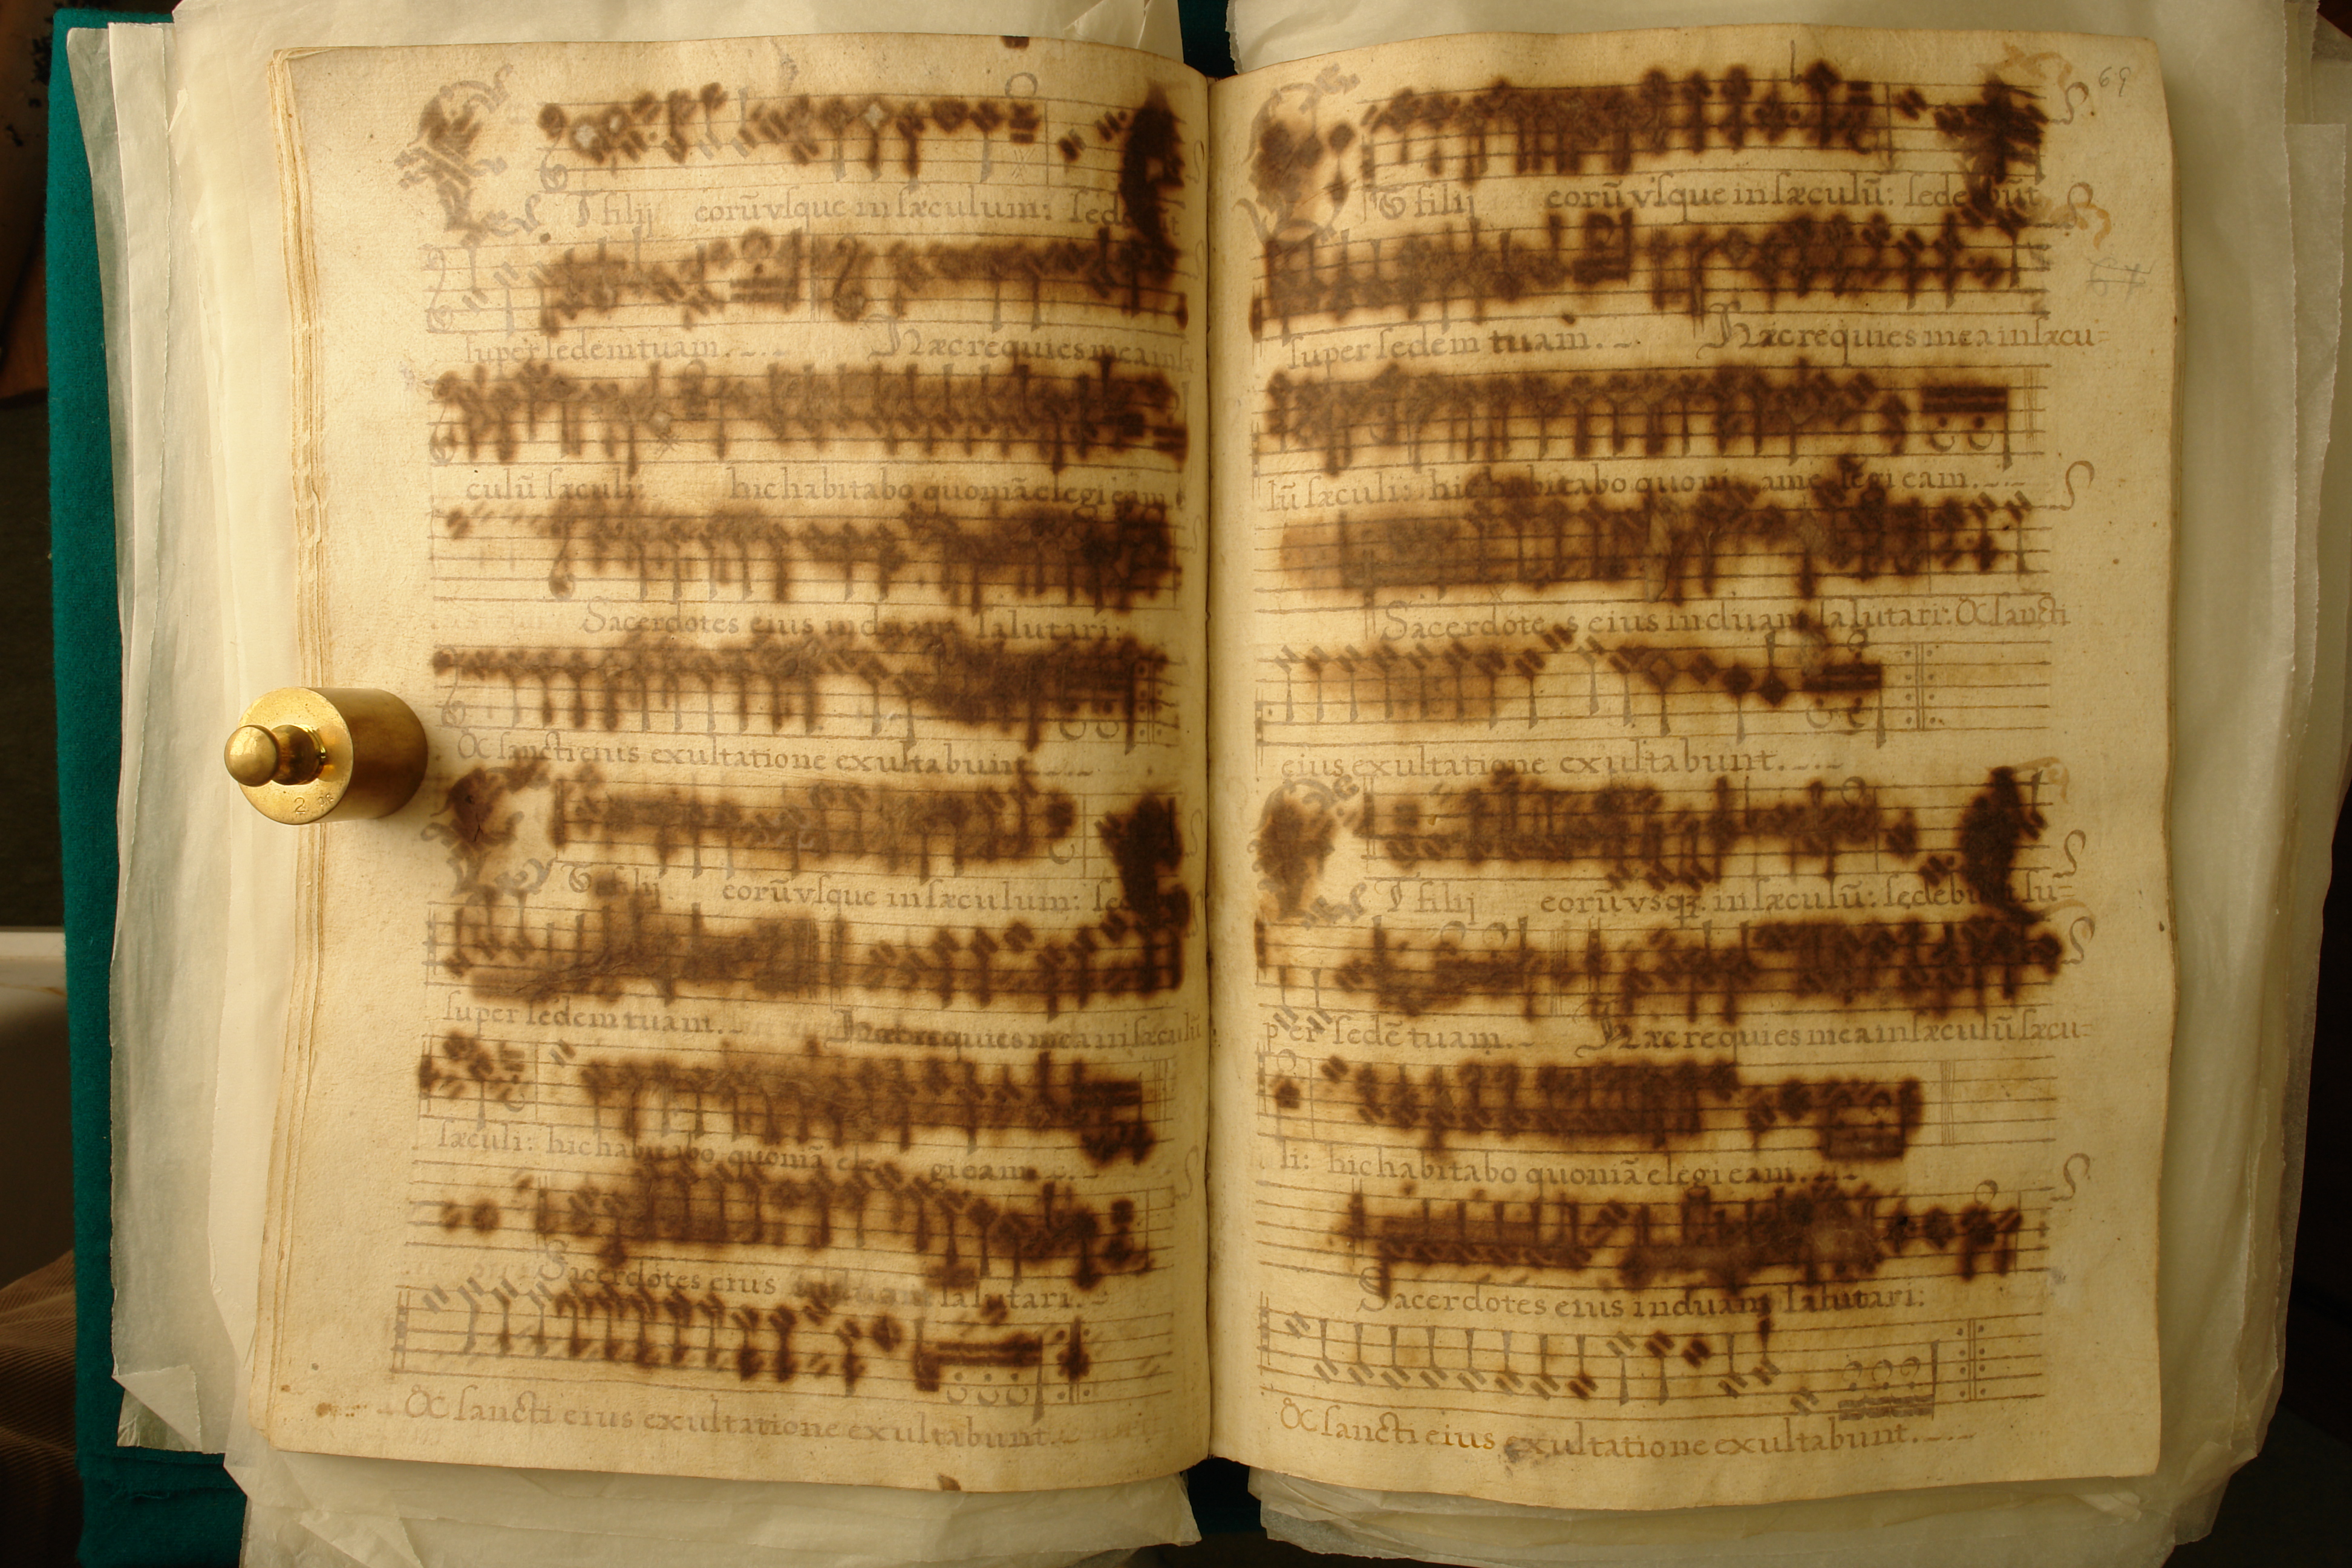 T filij eorũ vsque in sæculum: sedebunt
super sedem tuam. Hæc requies mea in sæ
culũ sæculi: hic habitabo quoniã elegi eam
Sacerdotes eius induam salutari:
& sancti eius exultatione exultabunt.
T filij eorũ vsque in sæculum: se
super sedem tuam. Hæc requies mea in sæculũ
sæculi: hic habitabo quoniã ele gi eam.
Sacerdotes eius salutari.
& sancti eius exultatione exultabunt.
69
T filij eorũ vsque in sæculũ: sedebunt
super sedem tuam. Hæc requies mea in sæcu=
lũ sæculi: hic habitabo quoni am e legi eam.
Sacerdote s eius induam salutari: & sancti
eius exultatione exultabunt.
T filij eorũ vsq; in sæculũ: sedebunt su=
per sedẽ tuam. Hæc requies mea in sæculũ sæcu=
li: hic habitabo quoniã elegi eam.
Sacerdotes eius induam salutari:
& sancti eius exultatione exultabunt.